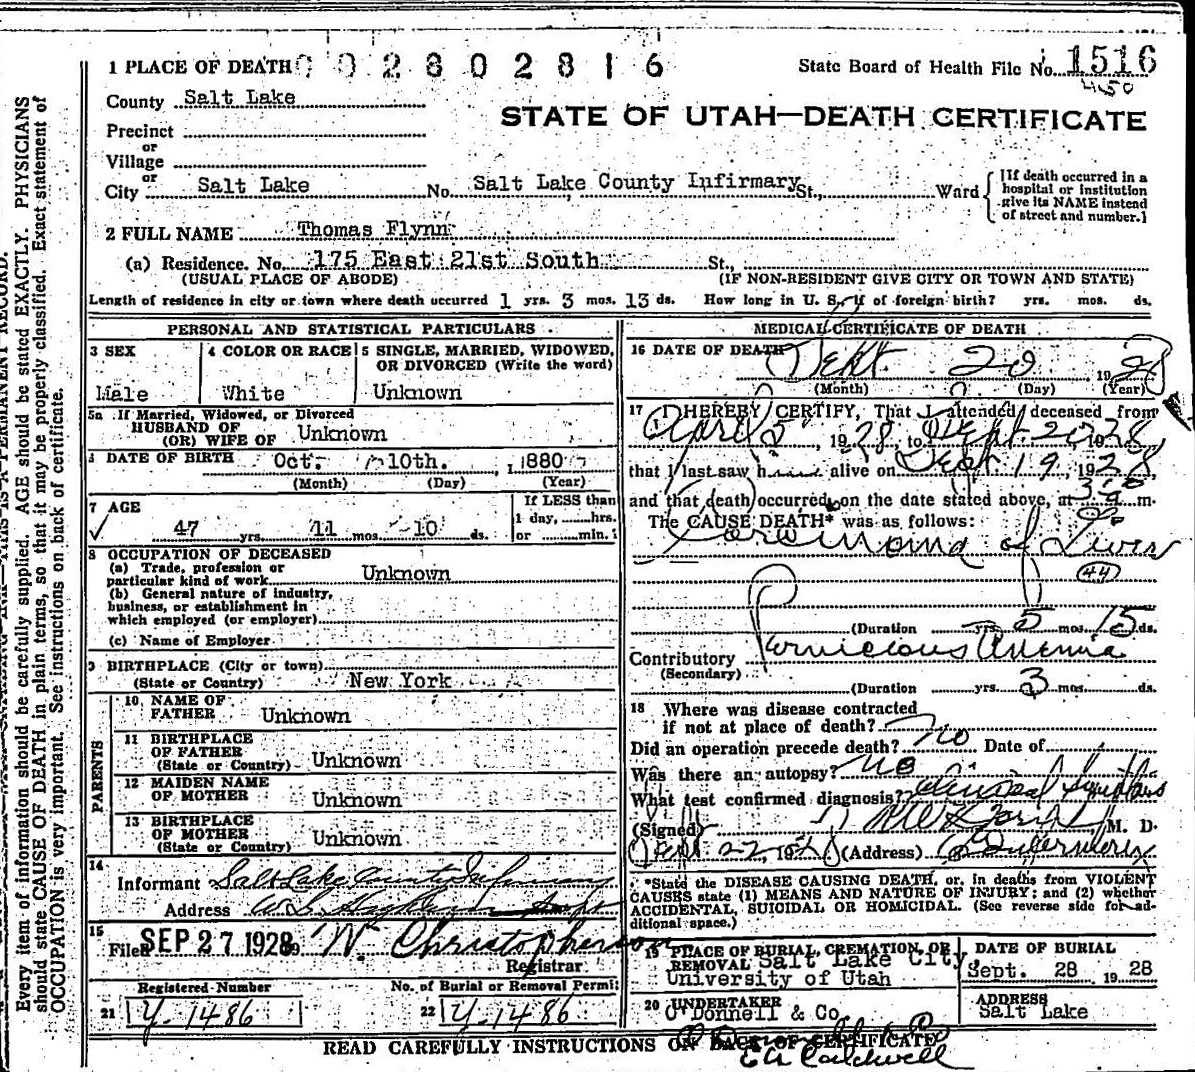 1 PLACE OF DEATH 002802816 State Board of Health File No. 1516
450
County Salt Lake
STATE OF UTAH—DEATH CERTIFICATE
Precinct
or
Village
or
City Salt Lake No. Salt Lake County Infirmary St., Ward
[If death occurred in a hospital or institution give its NAME instead of street and number.]
2 FULL NAME Thomas Flynn
(a) Residence. No. 175 East 21st South St.,
(USUAL PLACE OF ABODE) (IF NON-RESIDENT GIVE CITY OR TOWN AND STATE)
Length of residence in city or town where death occurred 1 yrs. 3 mos. 13 ds. How long in U. S., if of foreign birth? yrs. mos. ds.
PERSONAL AND STATISTICAL PARTICULARS
3 SEX
Male
4 COLOR OR RACE
White
5 SINGLE, MARRIED, WIDOWED,
OR DIVORCED (Write the word)
Unknown
5a If Married, Widowed, or Divorced
HUSBAND OF
(OR) WIFE OF Unknown
6 DATE OF BIRTH Oct. 10th. 1880
(Month) (Day) (Year)
7 AGE
47 yrs. 11 mos. 10 ds.
If LESS than
1 day, hrs.
or min.
8 OCCUPATION OF DECEASED
(a) Trade, profession or
particular kind of work Unknown
(b) General nature of industry,
business, or establishment in
which employed (or employer)
(c) Name of Employer
9 BIRTHPLACE (City or town)
(State or Country) New York
PARENTS
10 NAME OF
FATHER Unknown
11 BIRTHPLACE
OF FATHER
(State or Country) Unknown
12 MAIDEN NAME
OF MOTHER Unknown
13 BIRTHPLACE
OF MOTHER
(State or Country) Unknown
14
Informant Salt Lake County Infirmary
Address Supt
15
Filed SEP 27 1928 W. Christopherson
Registrar
Registered Number
21 Y-1486
No. of Burial or Removal Permit
22 Y-1486
MEDICAL CERTIFICATE OF DEATH
16 DATE OF DEATH Sept 20 1928
(Month) (Day) (Year)
17 I HEREBY CERTIFY, That I attended deceased from
April 5, 1928, to Sept. 20 1928,
that I last saw h alive on Sept. 19, 1928,
and that death occurred on the date stated above, at m.
The CAUSE DEATH* was as follows:
Carcinoma of Liver
44
(Duration yrs. 5 mos. 15 ds.
Contributory Pernicious Anemia
(Secondary)
(Duration yrs. 3 mos. ds.
18 Where was disease contracted
if not at place of death?
Did an operation precede death? No Date of
Was there an autopsy? No
What test confirmed diagnosis? Clinical Symptoms
(Signed) M. D.
Sept 22, 1928 (Address)
*State the DISEASE CAUSING DEATH, or, in deaths from VIOLENT
CAUSES state (1) MEANS AND NATURE OF INJURY; and (2) whether
ACCIDENTAL, SUICIDAL OR HOMICIDAL. (See reverse side for ad-
ditional space.)
19 PLACE OF BURIAL, CREMATION, OR
REMOVAL Salt Lake City,
University of Utah
DATE OF BURIAL
Sept. 28 1928
20 UNDERTAKER
O'Donnell & Co.
ADDRESS
Salt Lake
READ CAREFULLY INSTRUCTIONS ON BACK OF CERTIFICATE
E A Caldwell
Every item of information should be carefully supplied. AGE should be stated EXACTLY. PHYSICIANS
should state CAUSE OF DEATH in plain terms, so that it may be properly classified. Exact statement of
OCCUPATION is very important. See instructions on back of certificate.